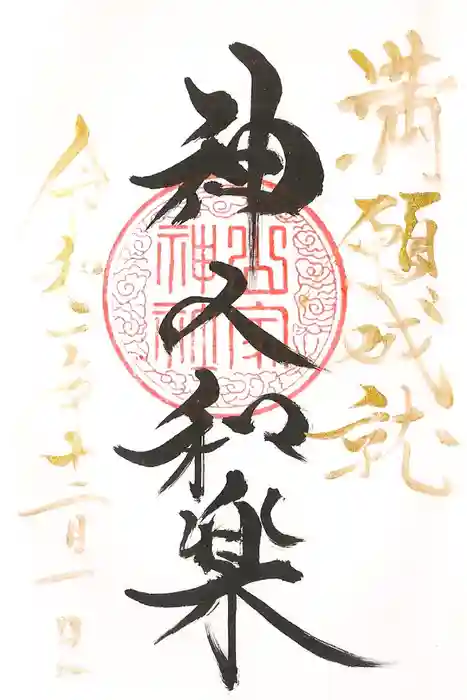 満願成就
神人和楽
山家神社
令和二年十二月一日